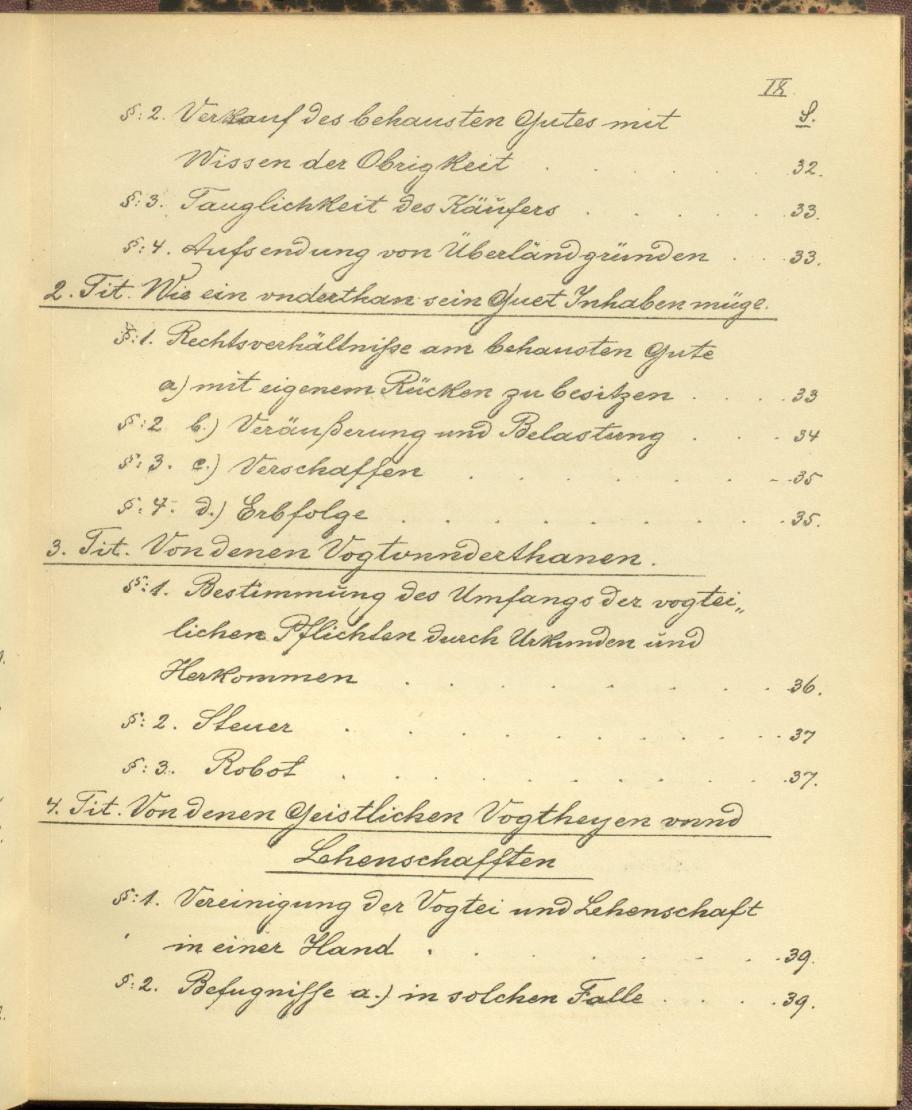 IX.
S.
§: 2. Verkauf des behausten Gutes mit
Wissen der Obrigkeit . . . . . 32.
§: 3. Tauglichkeit des Käufers . . . . . 33.
§: 4. Aufsendung von Überländgründen . . . 33.
2. Tit. Wie ein vnderthan sein Guet Inhaben müge.
§: 1. Rechtsverhältniße am behausten Gute
a) mit eigenem Rücken zu besitzen . . . . 33
§: 2 b.) Veräußerung und Belastung . . . 34
§: 3. c.) Verschaffen . . . . . . 35
§: 4. d.) Erbfolge . . . . . . . . 35.
3. Tit. Von denen Vogtvnnderthanen.
§: 1. Bestimmung des Umfangs der vogtei„
lichen Pflichten durch Urkunden und
Herkommen . . . . . . . 36.
§: 2. Steuer . . . . . . . . 37
§: 3. Robot . . . . . . . . 37.
4. Tit. Von denen Geistlichen Vogtheyen vnnd
Lehenschafften
§: 1. Vereinigung der Vogtei und Lehenschaft
in einer Hand . . . . . . . 39.
§: 2. Befugniße a.) in solchen Falle . . . . 39.